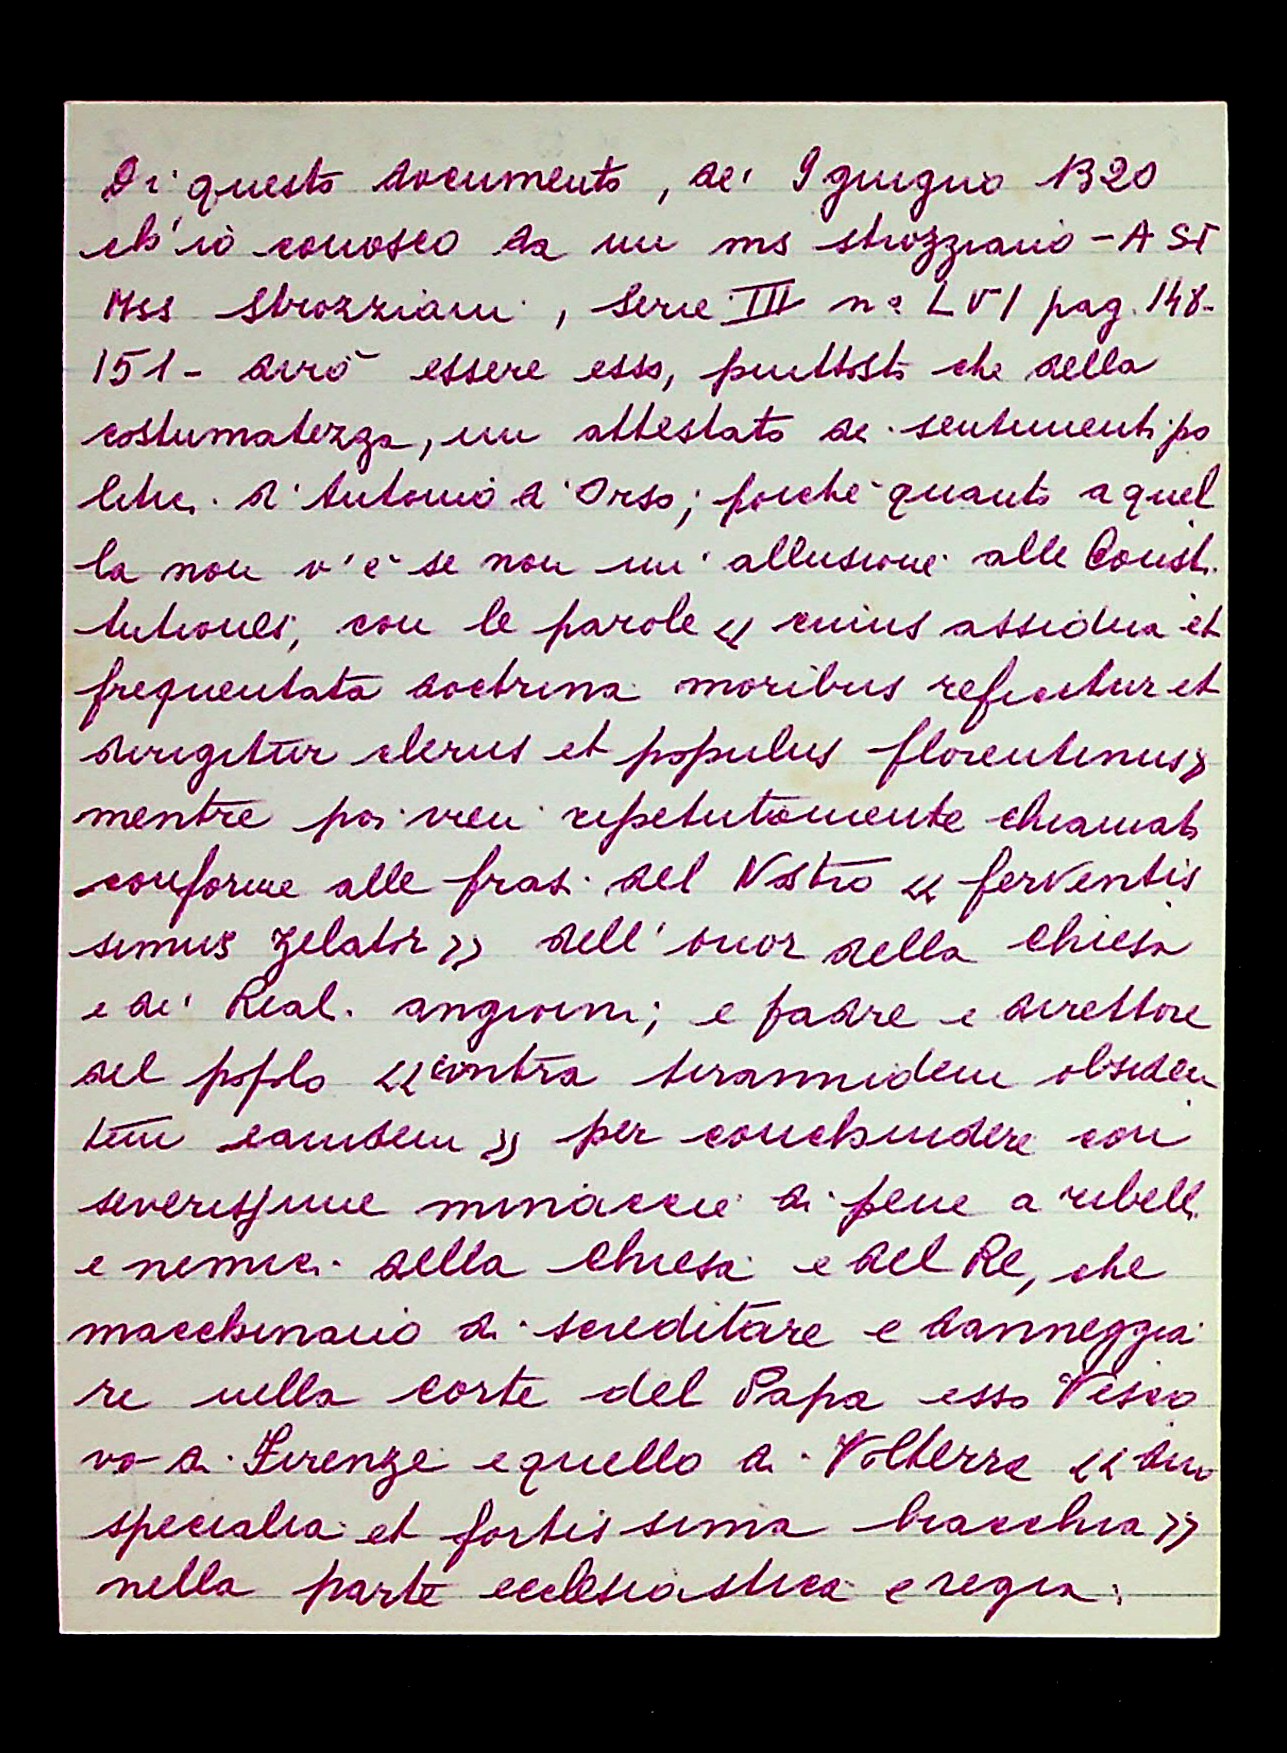 Di questo documento, de' 9 giugno 1320
ch'io conosco da un ms strozziano - A ST
Mss Strozziani, Serie III nº LVI pag. 148-
151 - dirò essere esso, piuttosto che della
costumatezza, un attestato de' sentimenti po
litici d'Antonio d'Orso; poichè quanto a quel
la non v'è se non un'allusione alle Consti
tutiones, con le parole « cuius assidua et
frequentata doctrina moribus reficitur et
dirigitur clerus et populus florentinus »
mentre poi vien ripetutamente chiamato
conforme alle frasi del Nostro « ferventis
simus zelator » dell'onor della Chiesa
e de' Reali angioini; e padre e direttore
del popolo « contra tirannidem obsiden
tem eamdem » per conchiudere con
severissime minaccie di pene a ribelli
e nemici della Chiesa e del Re, che
macchinano di screditare e danneggia
re nella corte del Papa esso Vesco
vo di Firenze e quello di Volterra « duo
specialia et fortissima bracchia »
nella parte ecclesiastica e regia.